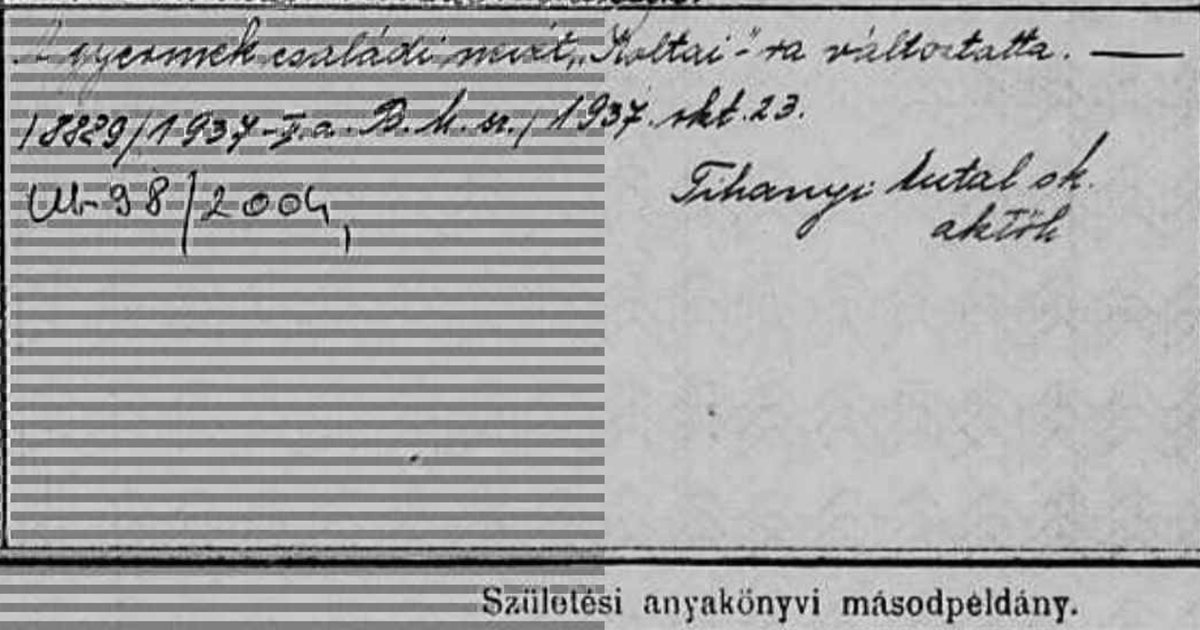 A gyermek családi nevét „Koltai"-ra változtatta. —
18829/1937-II.a. B.M.sz./ 1937. okt. 23.
Tihanyi Antal sk.
aktőh
98/2004,
Születési anyakönyvi másodpéldány.